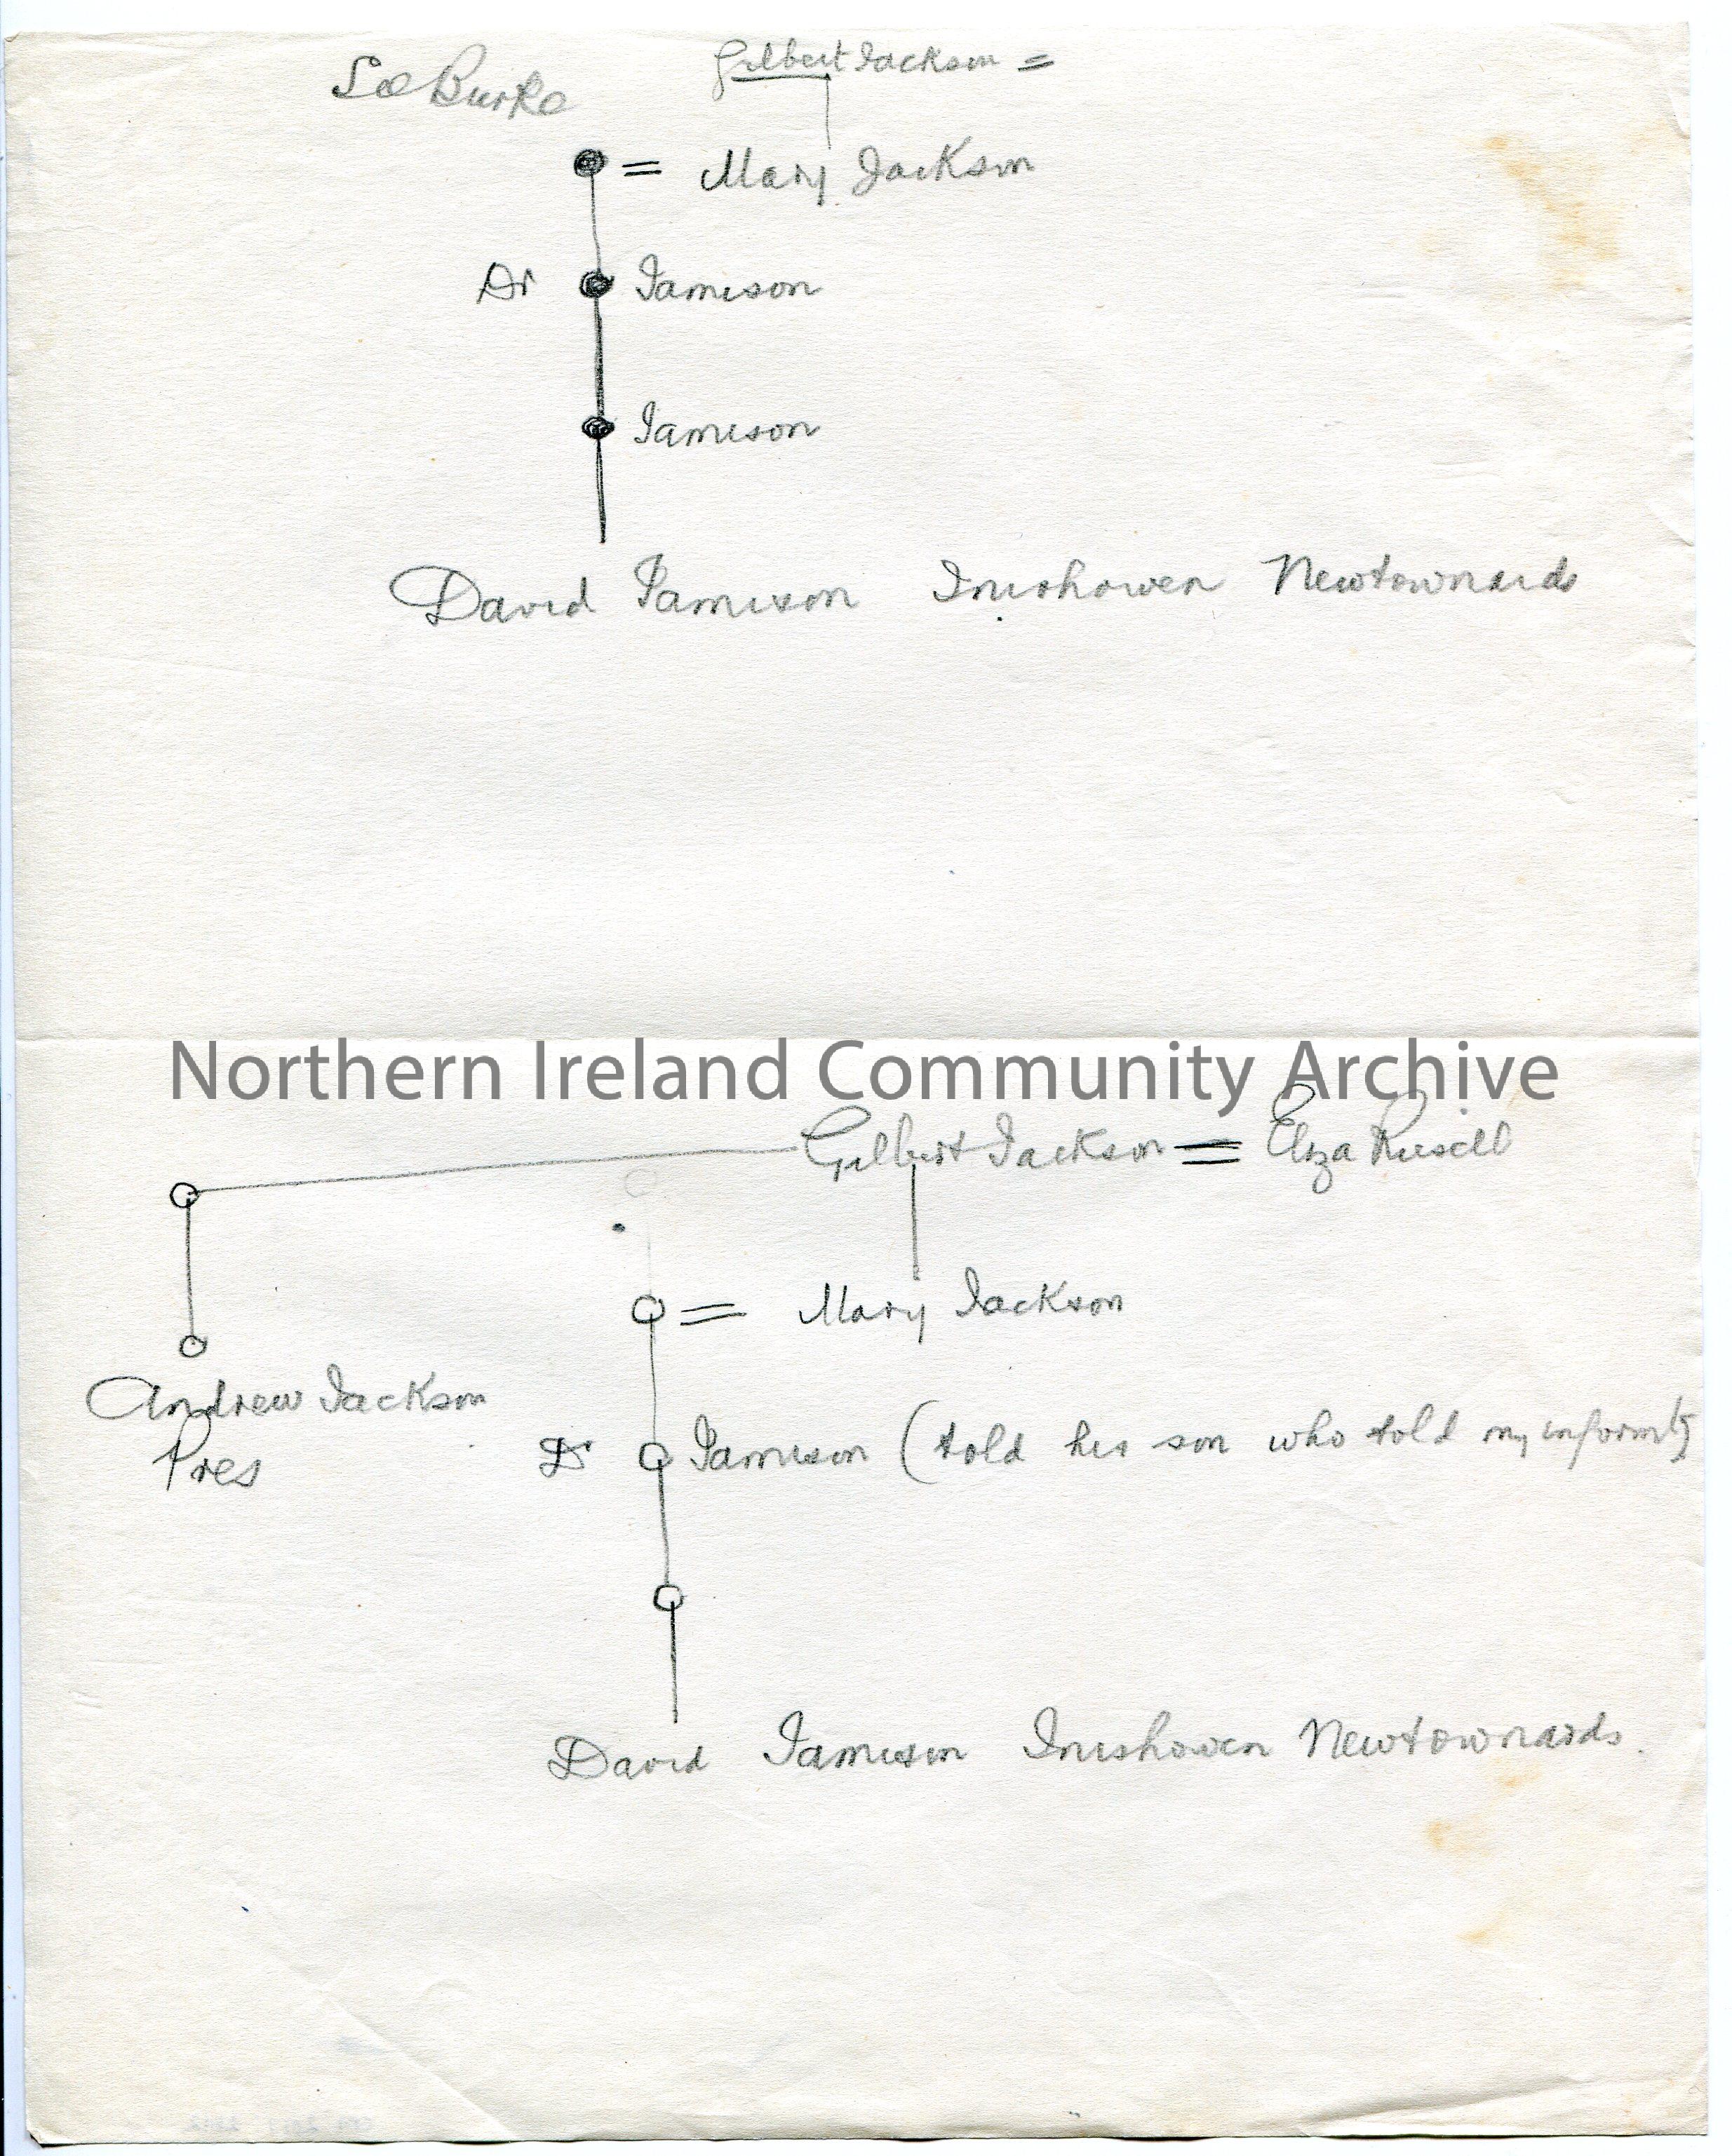 Gilbert Jackson =
See Burke
= Mary Jackson
Dr Jameson
Jameson
David Jameson Inishowen Newtownards
Northern Ireland Community Archive
Gilbert Jackson = Eliza Russell
= Mary Jackson
Andrew Jackson
Pres
Dr Jameson (told his son who told my informt)
David Jameson Inishowen Newtownards.